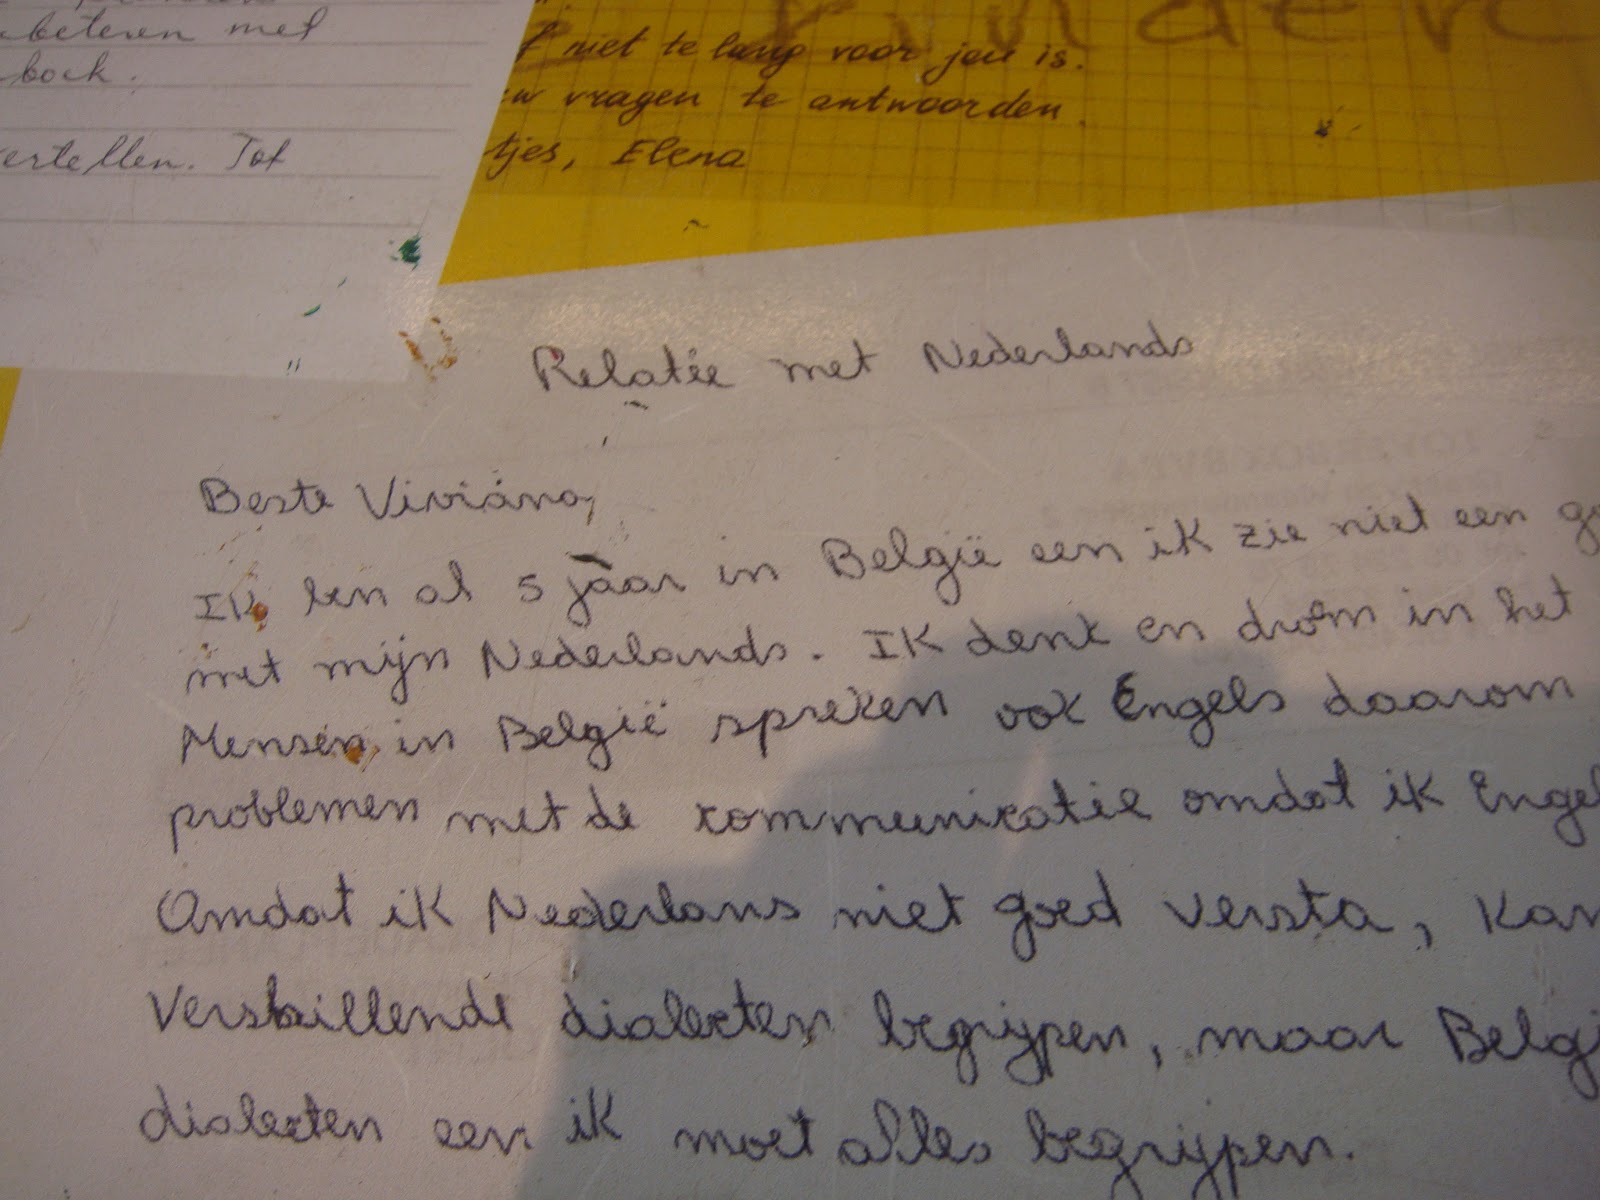 beteren met
boek.
ertellen. Tot
niet te lang voor jou is.
uw vragen te antwoorden.
tjes, Elena
Relatie met Nederlands
Beste Viviana,
Ik ben al 5 jaar in België een ik zie niet een
met mijn Nederlands. Ik denk en drom in het
Mensen in België spreken ook Engels daarom
problemen met de communicatie omdat ik Engel
Omdat ik Nederlans niet goed versta, kan
Verschillende dialecten begrijpen, maar Belgi
dialecten een ik moet alles begrijpen.